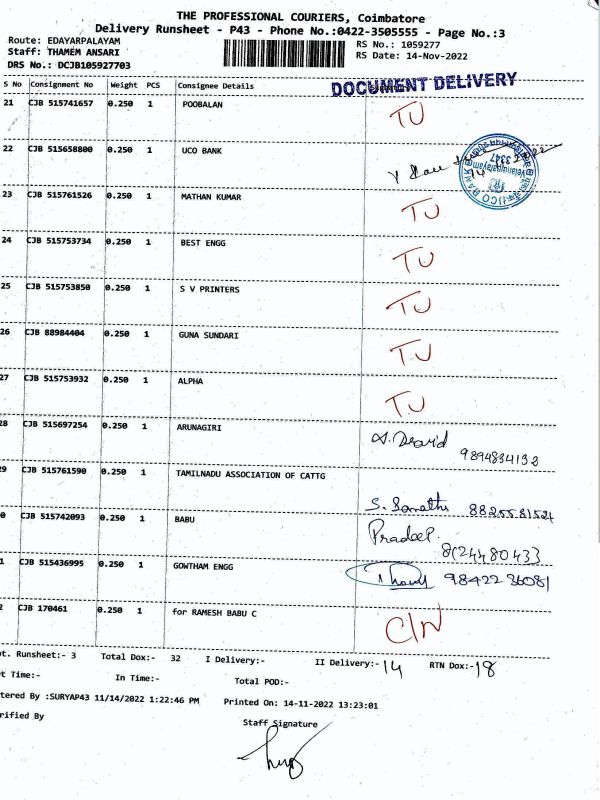 THE PROFESSIONAL COURIERS, Coimbatore
Delivery Runsheet - P43 - Phone No.:0422-3505555 - Page No.:3
Route: EDAYARPALAYAM
Staff: THAMEM ANSARI
DRS No.: DCJB105927703
RS No.: 1059277
RS Date: 14-Nov-2022
DOCUMENT DELIVERY
S No Consignment No Weight PCS Consignee Details
21 CJB 515741657 0.250 1 POOBALAN TU
22 CJB 515658800 0.250 1 UCO BANK
23 CJB 515761526 0.250 1 MATHAN KUMAR TU
24 CJB 515753734 0.250 1 BEST ENGG TU
25 CJB 515753850 0.250 1 S V PRINTERS TU
26 CJB 88984404 0.250 1 GUNA SUNDARI TU
27 CJB 515753932 0.250 1 ALPHA TU
28 CJB 515697254 0.250 1 ARUNAGIRI
9894834132
29 CJB 515761590 0.250 1 TAMILNADU ASSOCIATION OF CATTG
0 CJB 515742093 0.250 1 BABU Pradeep.
1 CJB 515436995 0.250 1 GOWTHAM ENGG 98422 36081
2 CJB 170461 0.250 1 for RAMESH BABU C C/N
t. Runsheet:- 3 Total Dox:- 32 I Delivery:- II Delivery:- 14 RTN Dox:- 18
t Time:- In Time:- Total POD:-
tered By :SURYAP43 11/14/2022 1:22:46 PM Printed On: 14-11-2022 13:23:01
rified By
Staff Signature